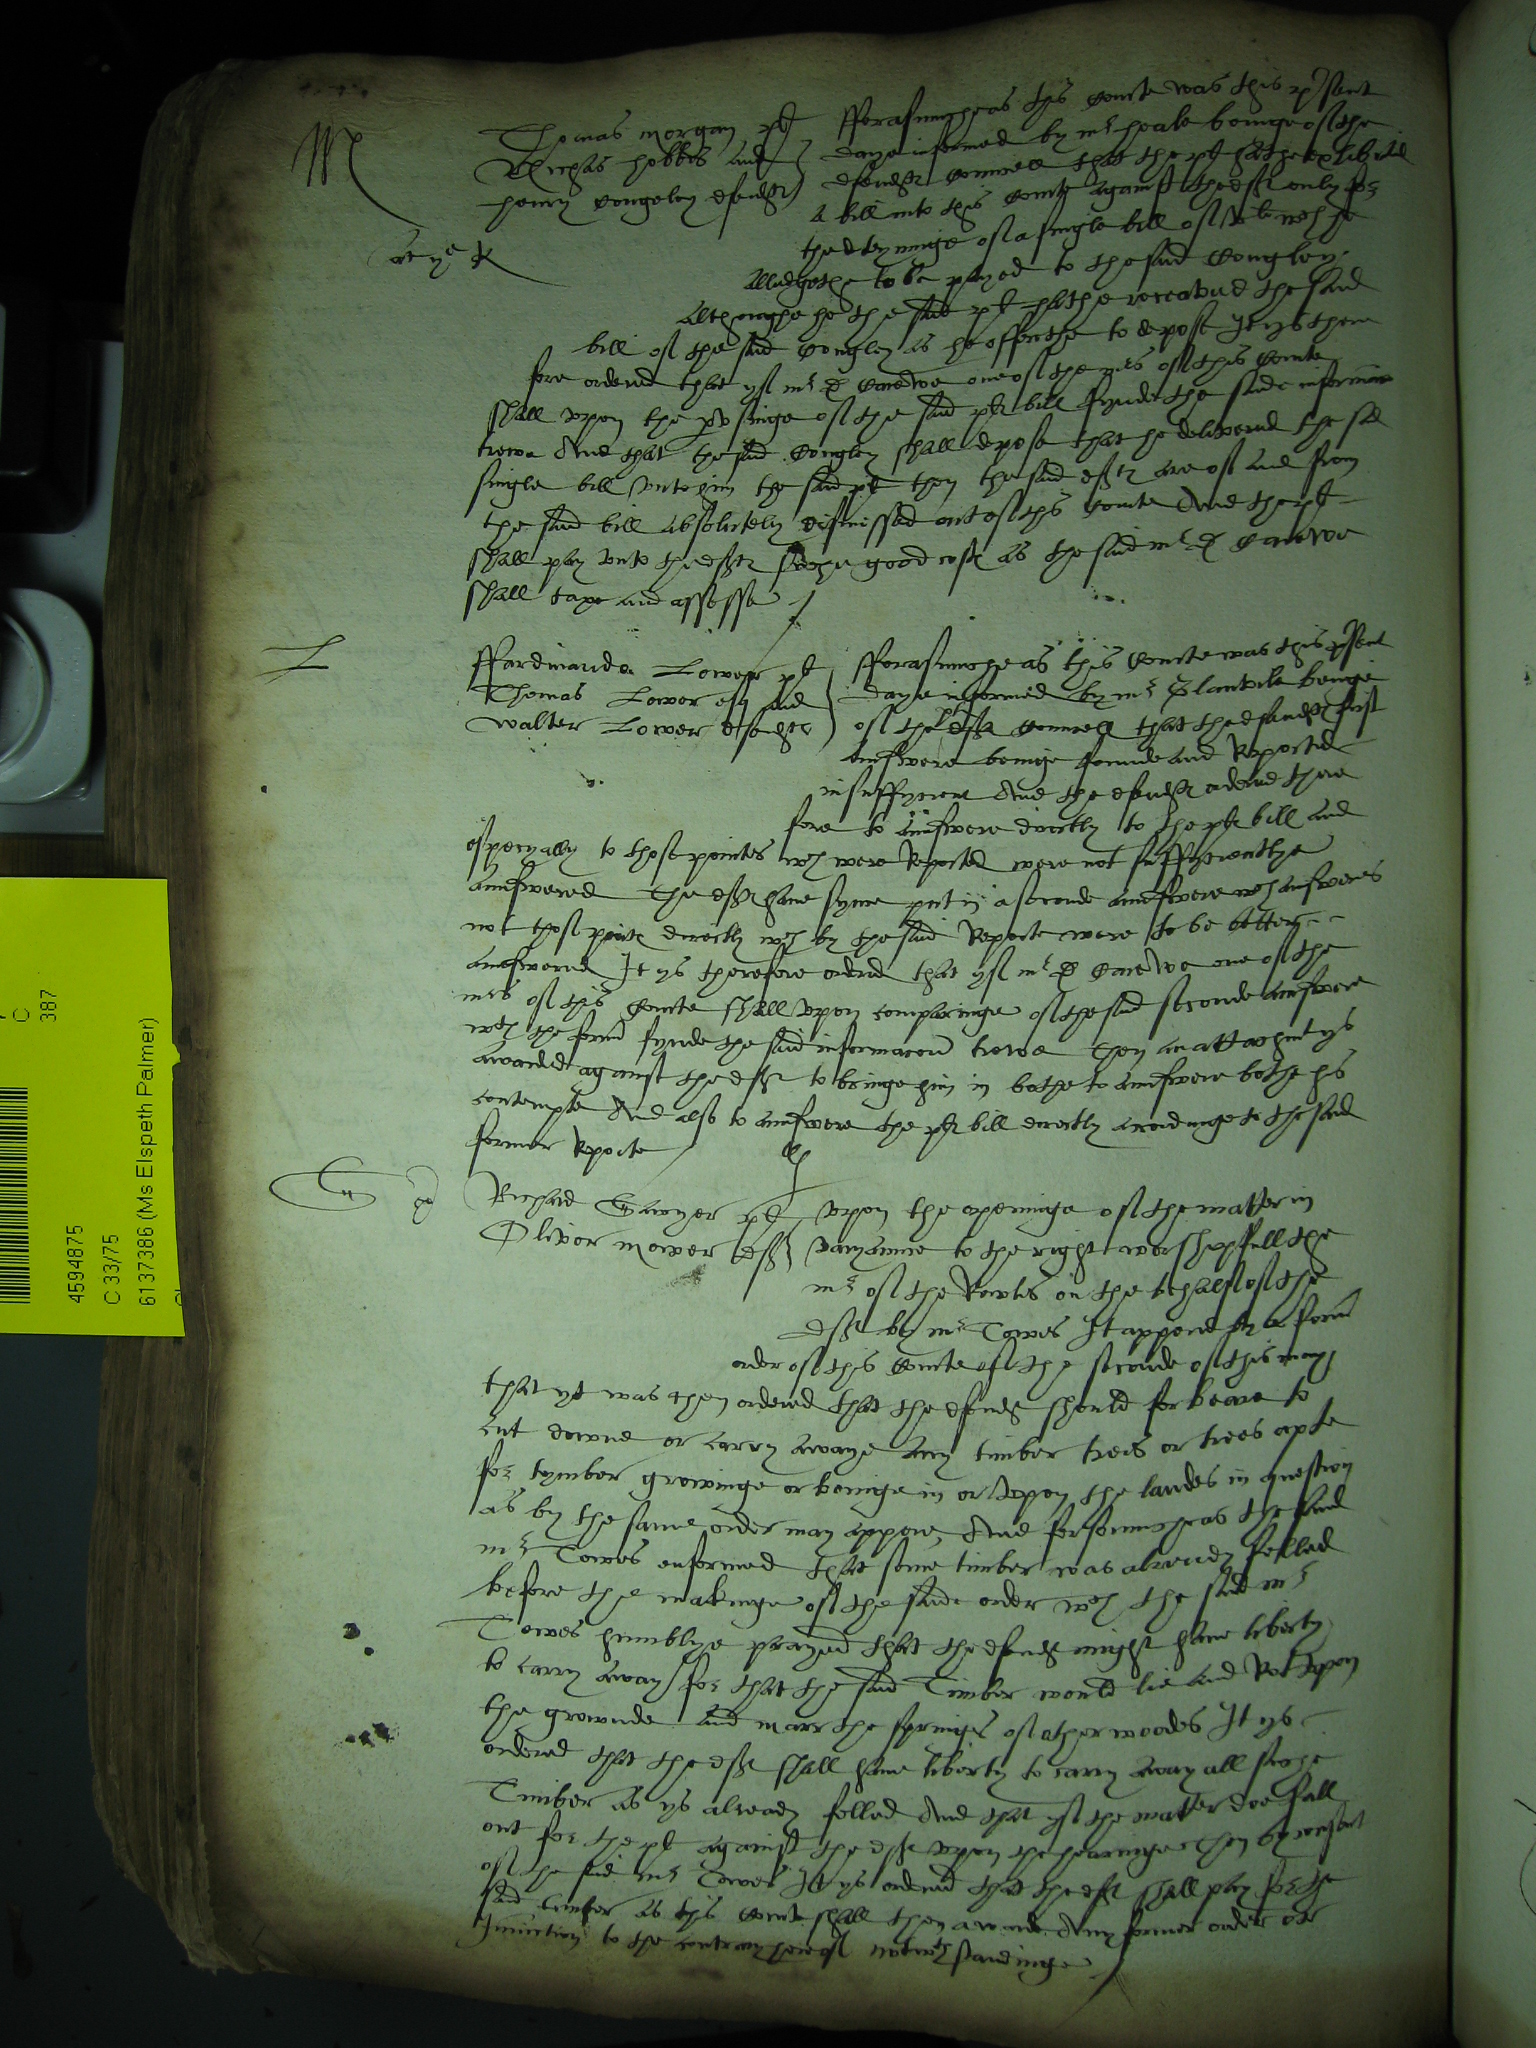 M
Thomas Morgan pl
Nicholas Hobbes and
Henry Congeley defendtes
fforasmucheas this Courte was this present
daye informed by mr heale beinge of the
defendtes Councell that the pl hathe exhibited
a bill into this Courte against the deftes only for
the deteyninge of a single bill of wch he
alledgethe to be payed to the said Congley
Althoughe he the said pl hathe receaved the said
bill of the said Congley as he offerithe to depose It ys there
fore ordered that yf mr D Carewe one of the mrs of this Courte
shall upon the perusinge of the said ples bill fynde the said informacion
trewe And that the said Congley shall depose that he delivered the said
single bill unto him the said pl then the said deftes are of and from
the said bill absolutely dismissed out of this Courte And the pl
shall pay unto the deftes suche good costes as the said mr D Carewe
shall taxe and assesse
L
Ffardinando Lower pl
Thomas Lower esq and
Walter Lower defendtes
fforasmuche as this Courte was this present
daye informed by mr Glanvile beinge
of the ples Councell that the defendtes first
aunswere beinge founde and Reported
insuffycient And the defendtes ordered there
fore to aunswere directly to the ples bill and
especyally to those pointes wch were Reported were not suffycientlye
aunswered The deftes have synce put in a seconde aunswere wch answeres
not those pointes directly wch by the said Reporte were to be better
aunswered It ys therefore ordered that yf mr D Carewe one of the
mrs of this Courte shall upon comparinge of the said seconde aunswere
wth the former fynde the said informacion trewe Then an attachment ys
awarded against the deft to bringe him in bothe to aunswere bothe his
contempte And also to aunswere the ples bill directly accordinge to the said
former Reporte
Richard Sawyer pl
Oliver mower deft
Upon the openinge of the matter in
varyaunce to the right worshipfull the
mr of the Rowles on the behalf of the
deft by mr Towes It appered by a former
order of this Courte of the seconde of this may
that yt was then ordered that the defendt should forbeare to
cut downe or carry awaye any timber trees or trees apte
for tymber growinge or beinge in or uppon the landes in question
as by the same order may appere, And forsomucheas the said
mr Towes enformed that some timber was already felled
before the makinge of the said order wch the said mr
Towes humblye prayed that the defendt might have liberty
to carry away for that the said Timber would lie and Rot uppon
the grounde and marr the springes of other woodes It ys
ordered that the deft shall have liberty to carry away all suche
Timber as ys already felled And that yf the matter doe fall
out for the pl against the deft upon the hearinge Then by consent
of the said mr Towes It ys ordered that the deft shall pay for the
said timber as this Courte shall then awarde Any former order or
Iniunction to the contrary hereof notwthstandinge
387
4594875
C 33/75
6137386 (Ms Elspeth Palmer)